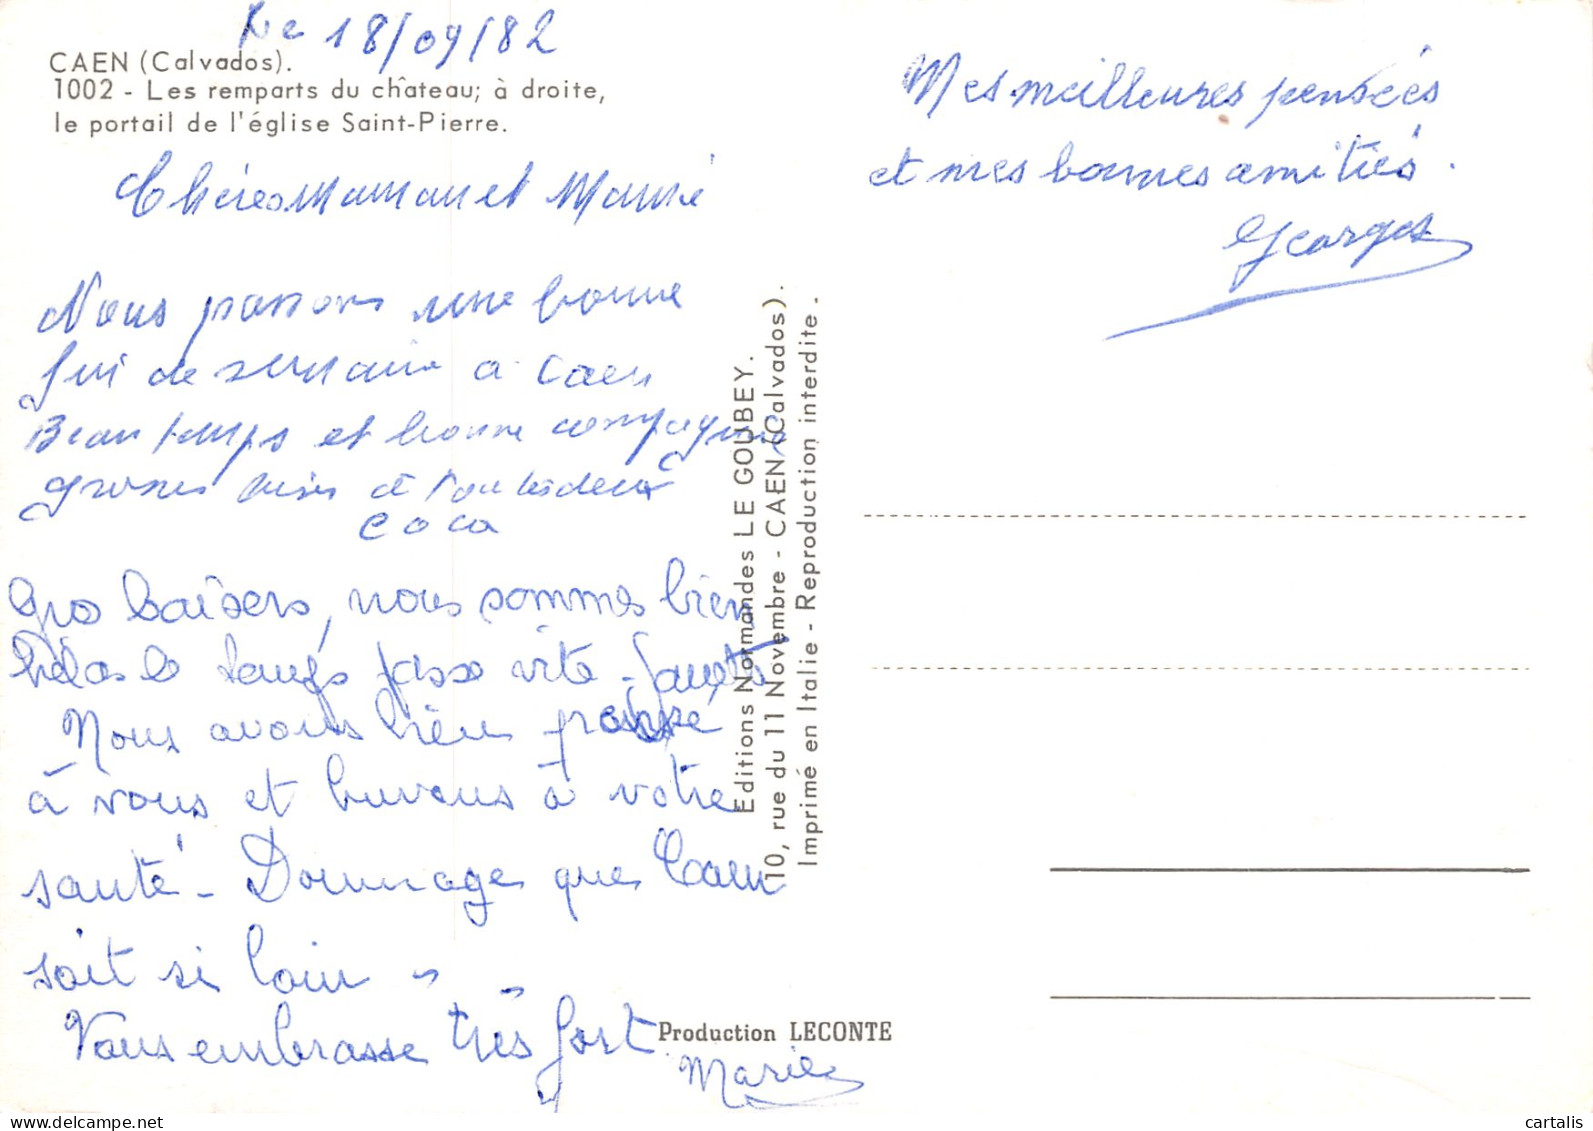 Le 18/09/82
CAEN (Calvados).
1002 - Les remparts du château; à droite,
le portail de l'église Saint-Pierre.
Chères Maman et
Nous passons une bonne
fin de semaine a Caen
Beau temps et bonne compagnie
grosses bises à toutes deux
coca
Gros baisers, nous sommes bien
hélas le temps passe vite -
Nous avons bien pensé
à vous et buvons à votre
santé - Dommage que Caen
soit si loin
Vous embrasse très fort
Marie
Mes meilleures pensées
et mes bonnes amitiés.
Georges
Editions Normandes LE GOUBEY.
10, rue du 11 Novembre - CAEN (Calvados).
Imprimé en Italie - Reproduction interdite.
Production LECONTE
cartalis